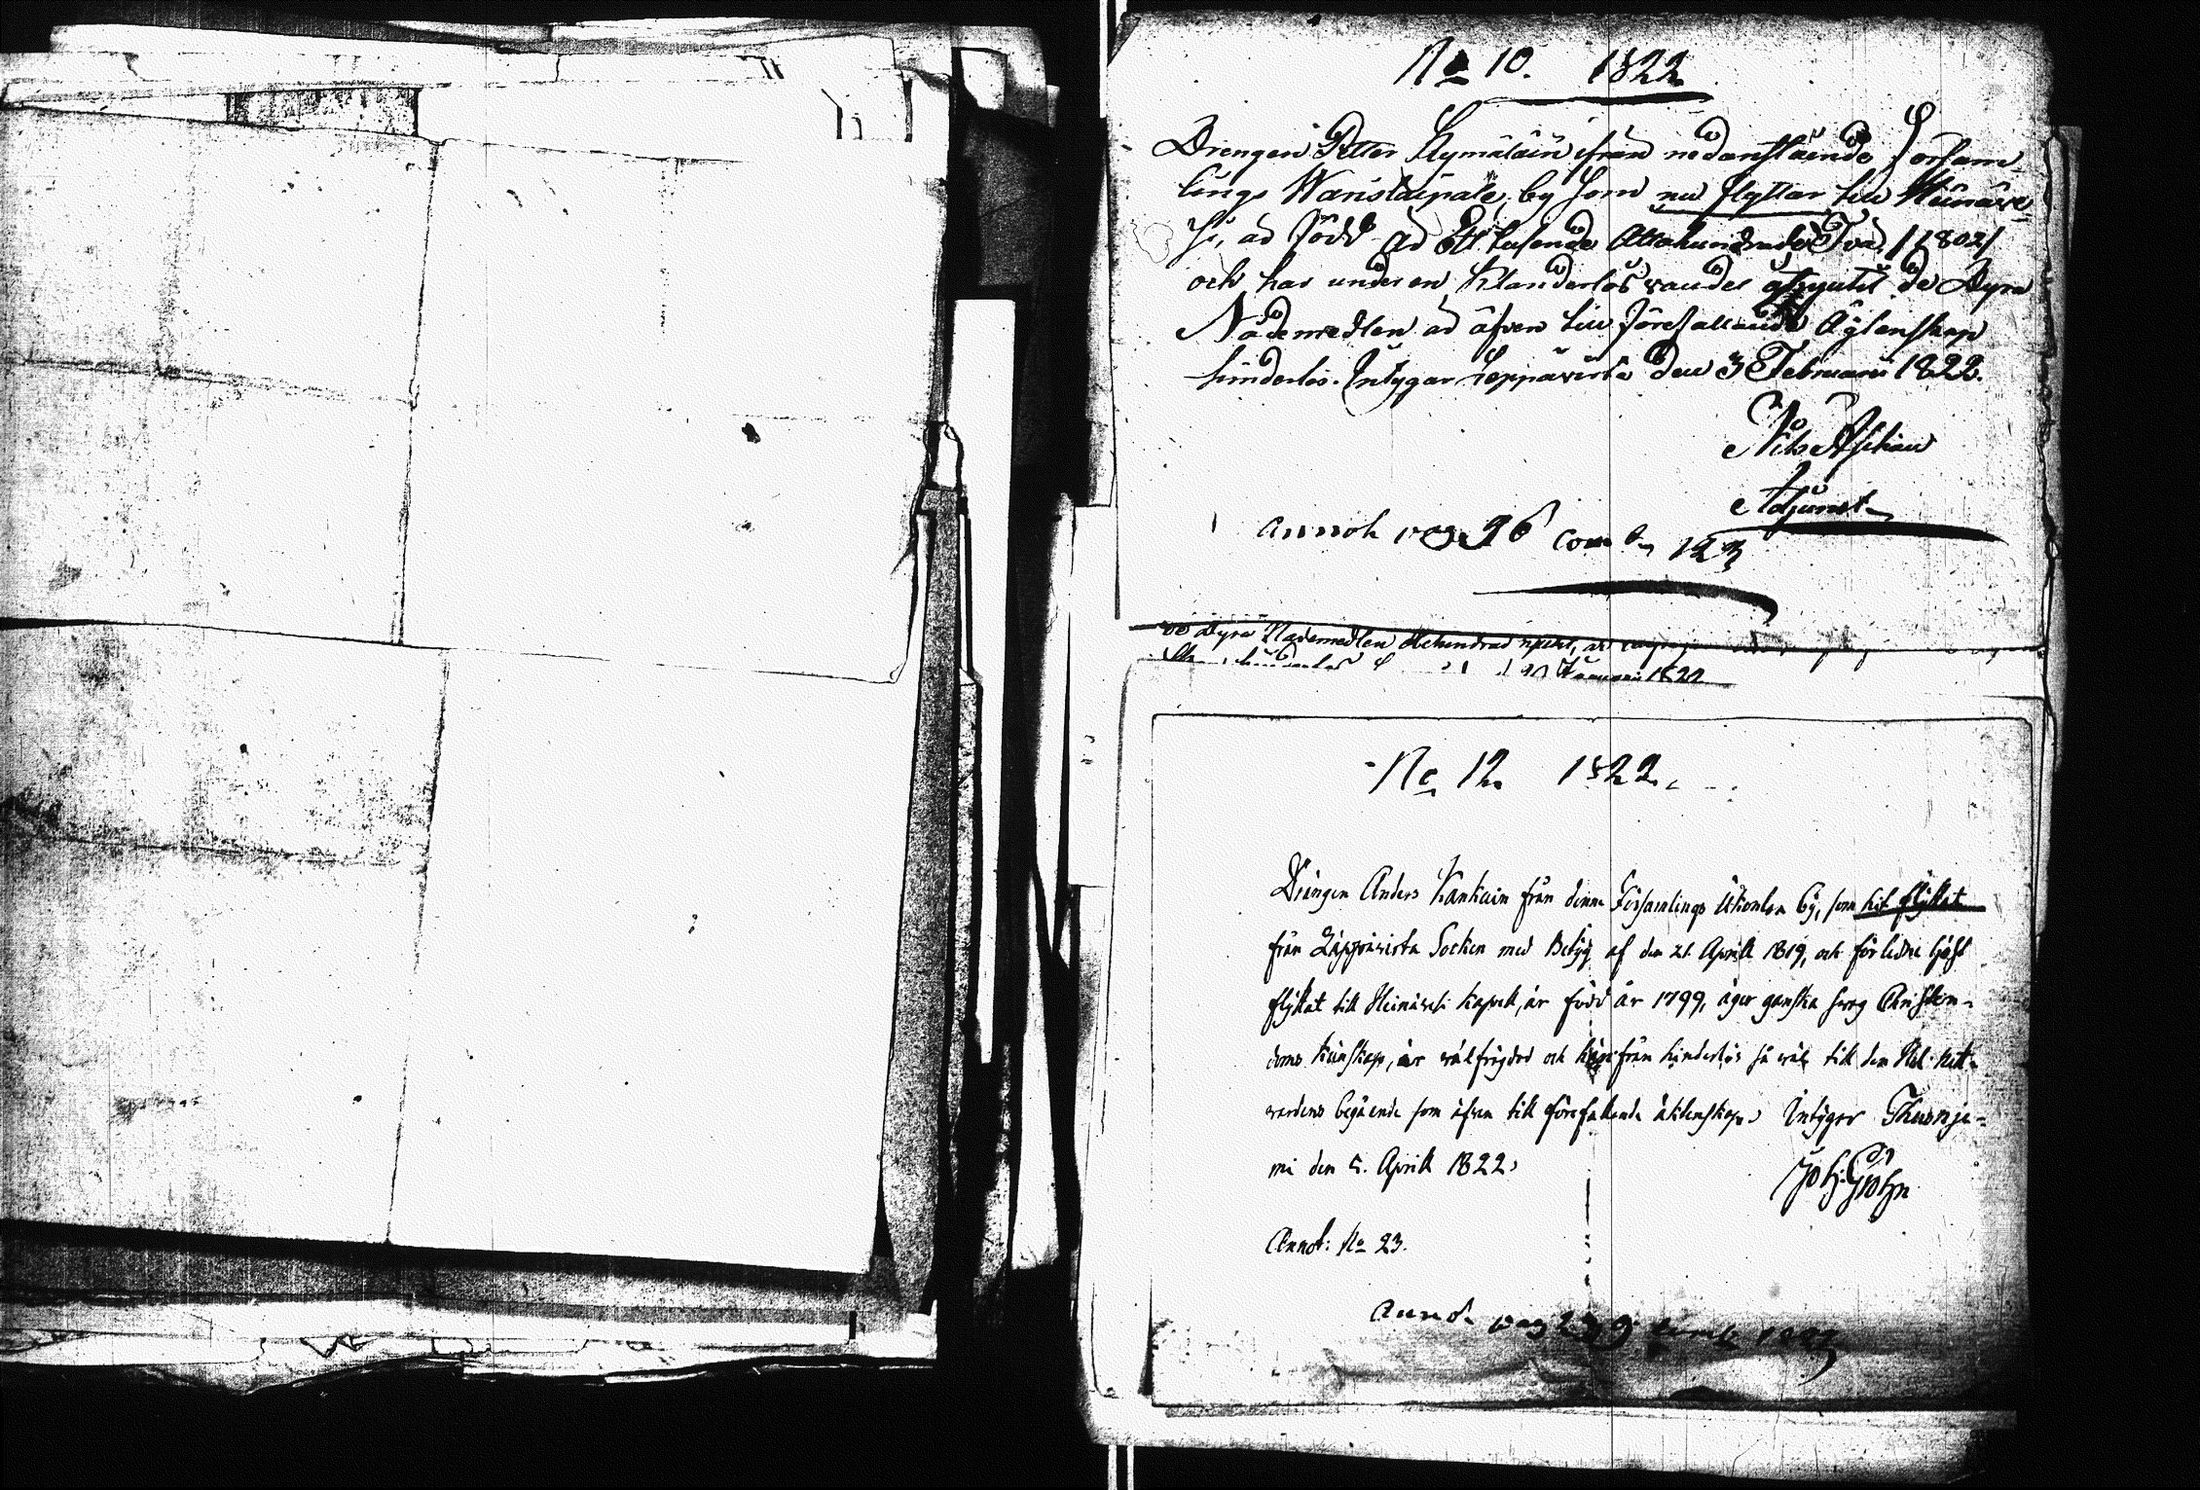 No 10. 1822
Drengen Petter Hymäläin ifrån nedanstående Forsam
lings Waristaipale by som nu flyttar till Heinäve
si, ad född ad Ett tusende Attahundrade Två /1802/
och har under en klanderlös vandel åtnjutit de Dyra
Nådemedlen ad äfven till förefallande Äktenskap
hinderlös. Intygar Leppävirta den 3 Februarii 1822.
Nils
Adjunct
annoh pag 96 comb 123
de dyra Nademedlen
Januarii 1822
No 12. 1822.
Drängen Anders Kankain från denne Församlings by, som hit flyttat
från Läppävirta Socken med Betyg af den 21 Aprill 1819, och förledne höst
flyttat till Heinävesi Kapell, är född år 1799, äger ganska swag Christen-
doms Kunskap, är wälfrägdad och härifrån hinderlös så wäl till den Hel. Natt-
wardens begående som äfven till förefallande äktenskap. Intygar Thusnje-
mi den 5. Aprill 1822.
Joh: Gröhn
Annot: No 23.
Annot pag 239